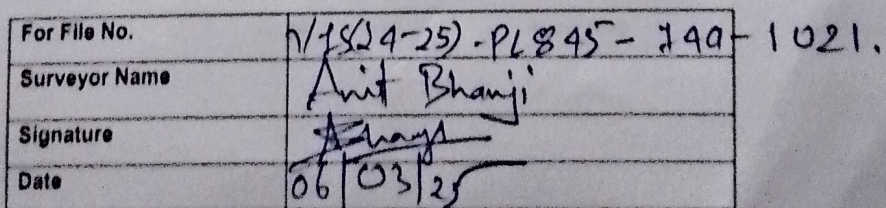 For File No. h/1S(24-25)-PL845-749-1021.
Surveyor Name Anit Bhanji
Signature
Date 06/03/25